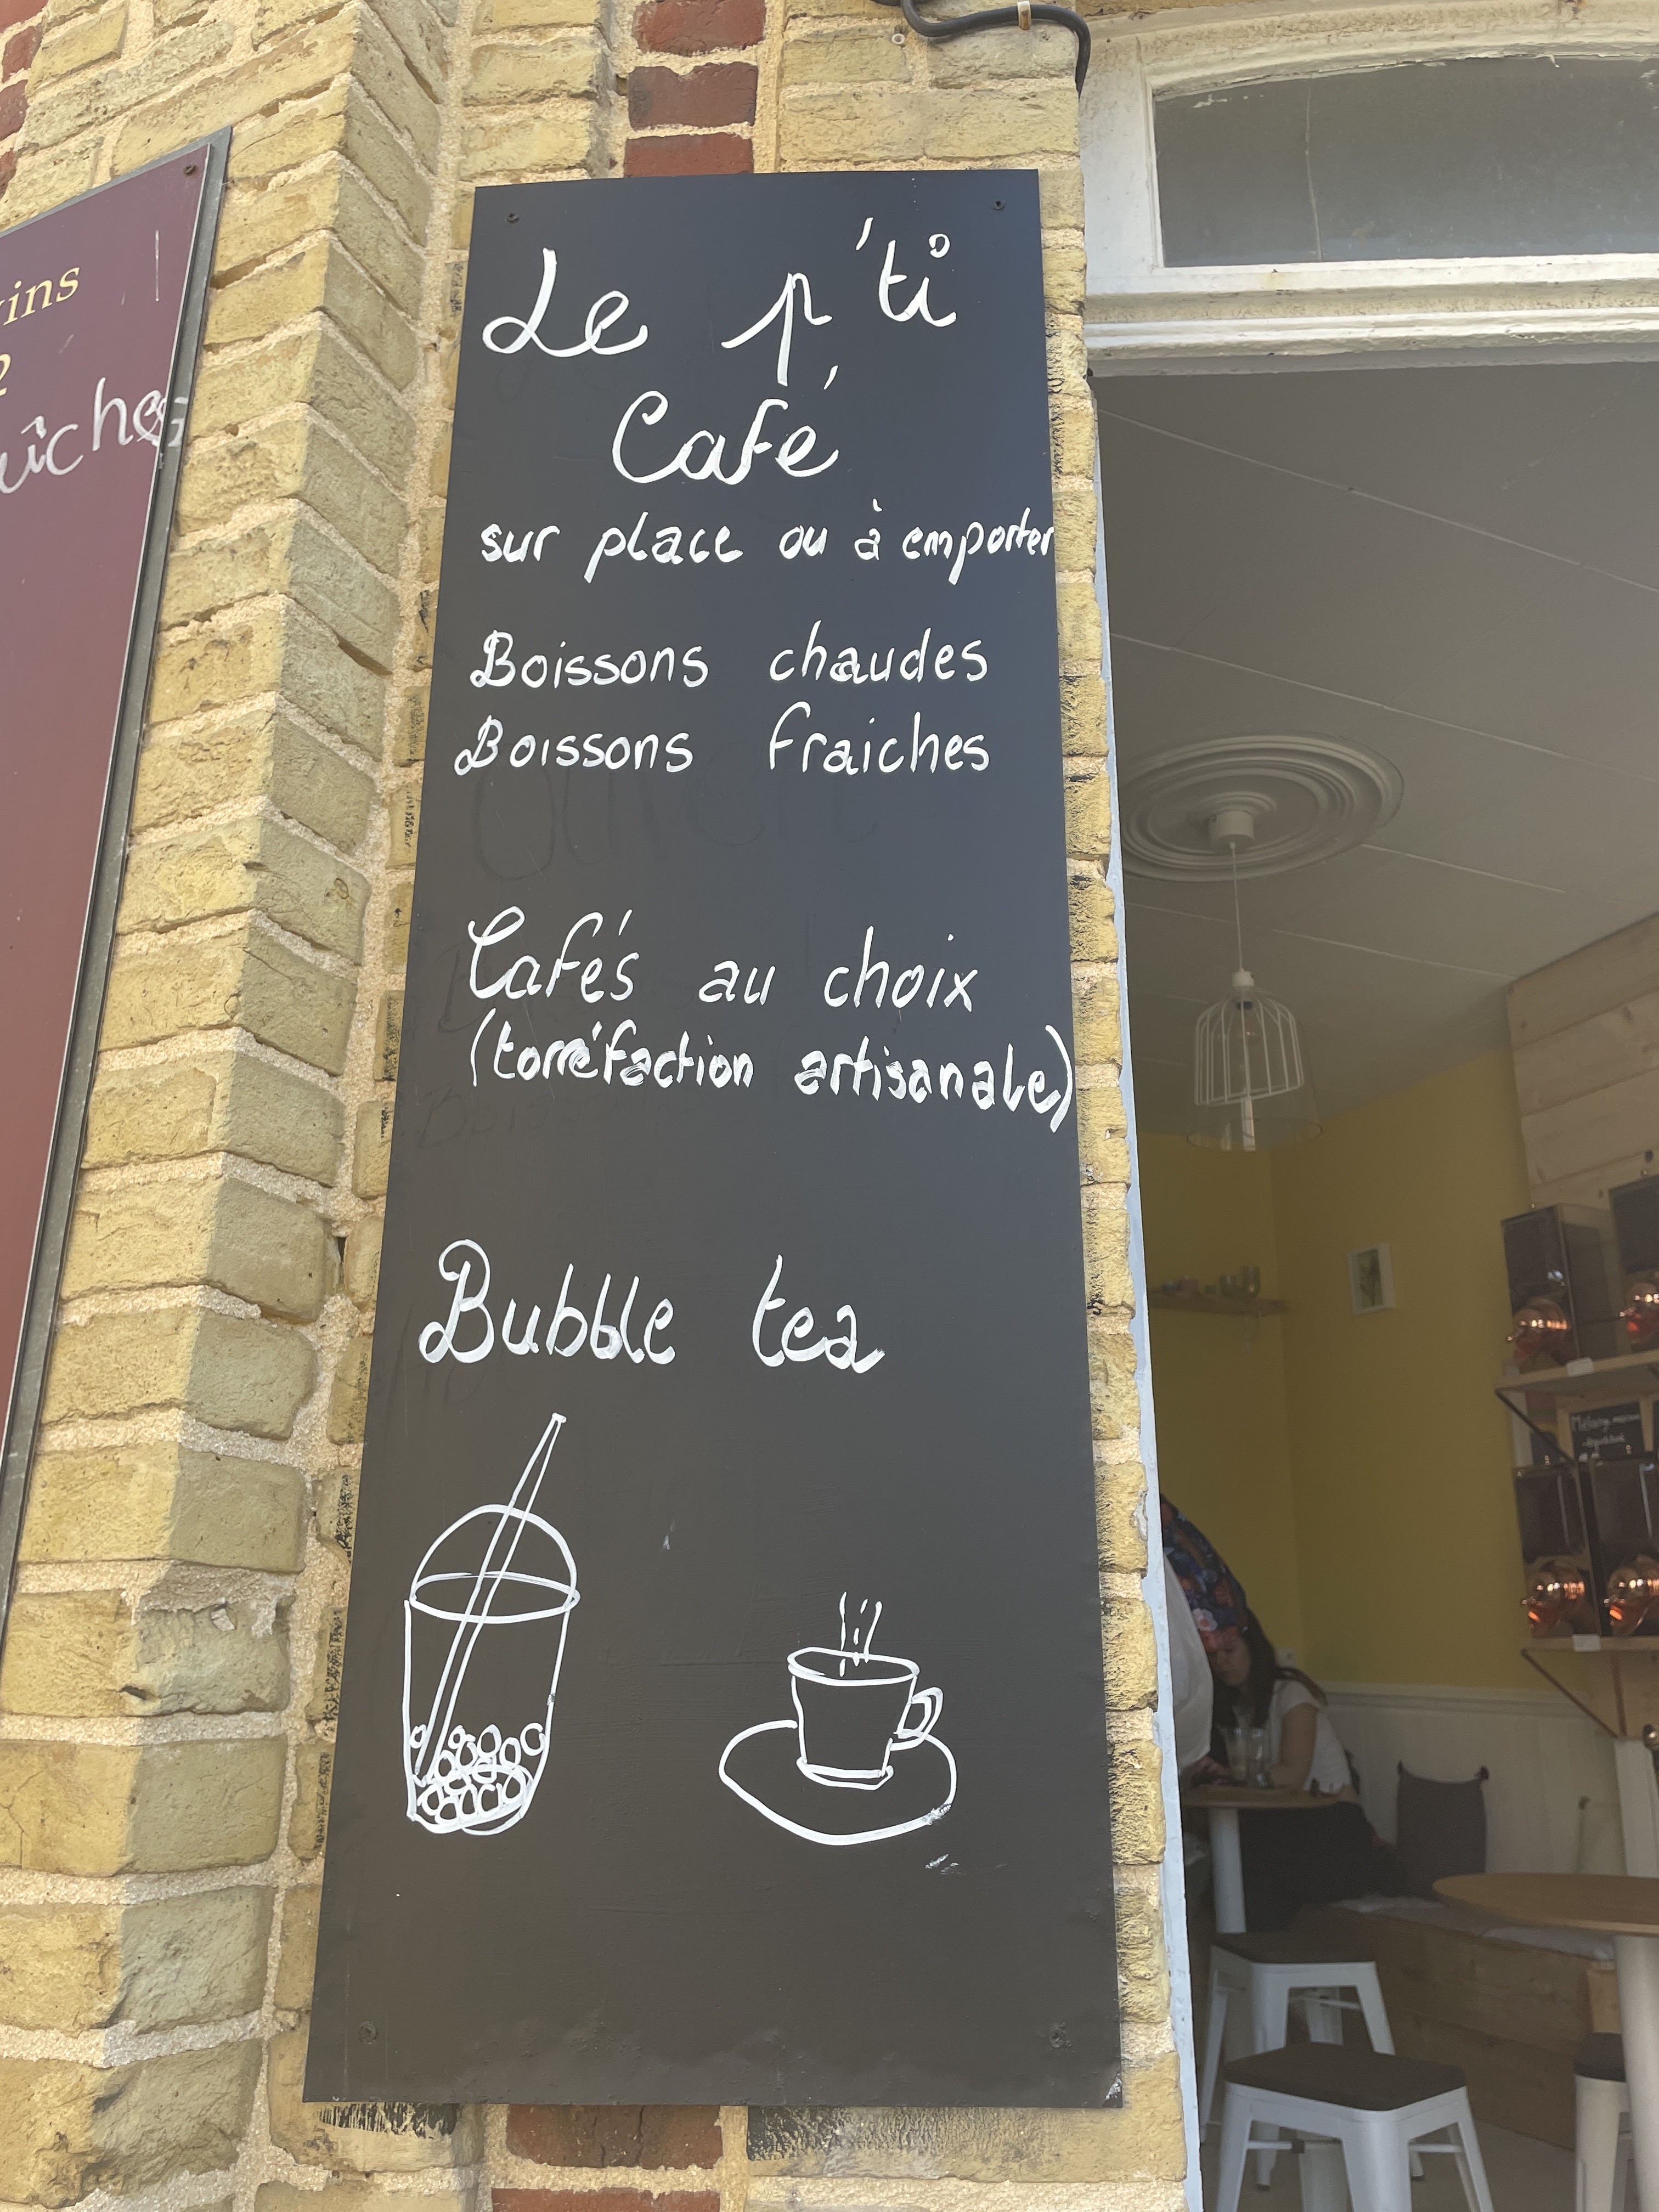 Le p'ti
Café
sur place ou à emporter
Boissons chaudes
Boissons fraiches
Cafés au choix
(torréfaction artisanale)
Bubble tea